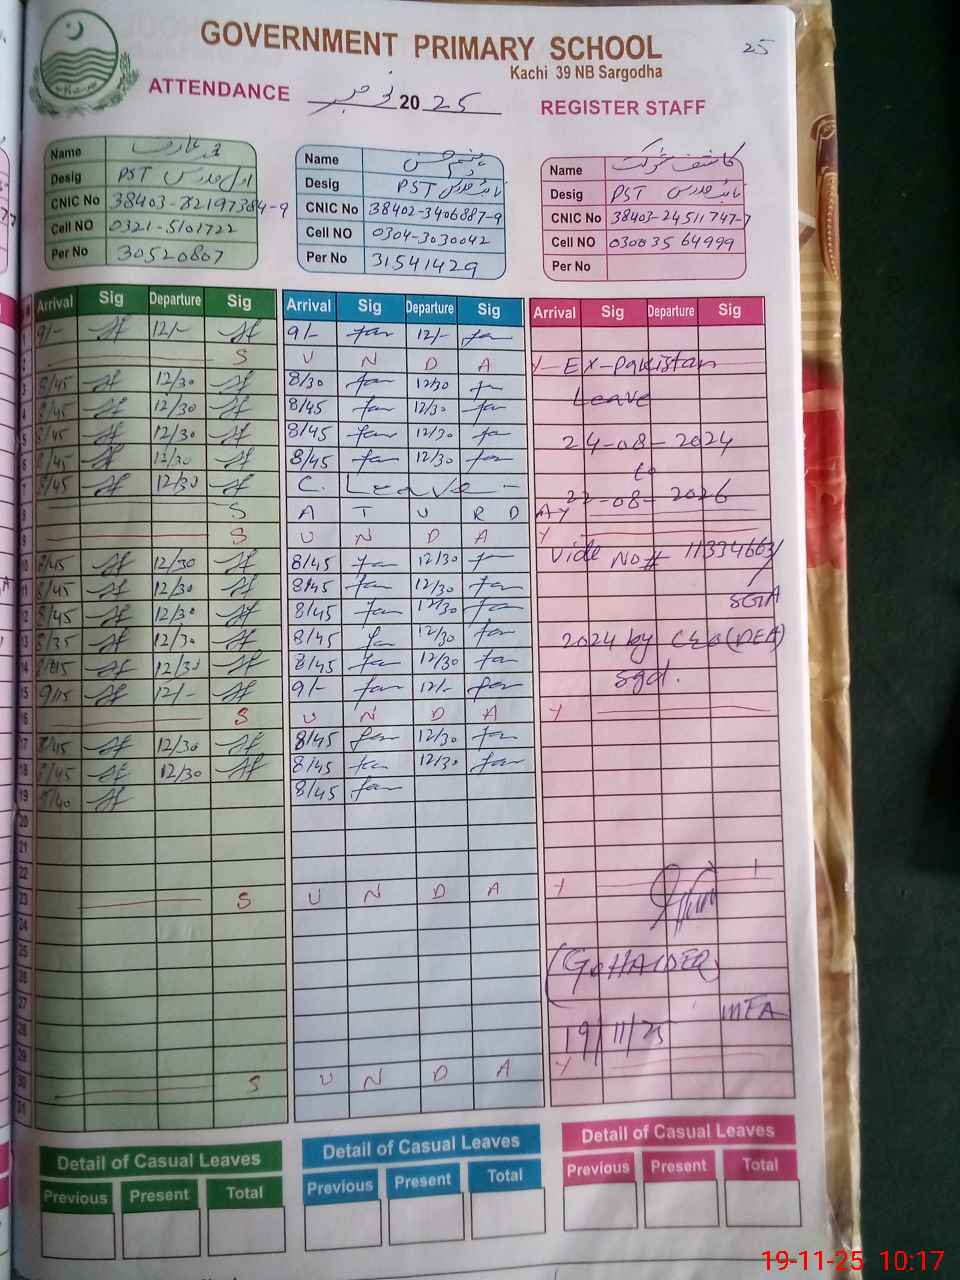 25
GOVERNMENT PRIMARY SCHOOL
Kachi 39 NB Sargodha
ATTENDANCE نومبر 2025 REGISTER STAFF
Name
Desig PST
CNIC No
Cell NO 0321-5101722
Per No 30520807
Name
Desig PST
CNIC No 38402-3406887-9
Cell NO 0304-3030042
Per No 31541429
Name کاشف شوکت
Desig PST
CNIC No 38403-24511747-7
Cell NO 030035 64999
Per No
Arrival Sig Departure Sig Arrival Sig Departure Sig Arrival Sig Departure Sig
1 9/- 12/- 9/- 12/-
2 S U N D A Y Ex-Pakistan
3 8/45 12/30 8/30 12/30
4 8/45 12/30 8/45 12/30 Leave
5 8/45 12/30 8/45 12/30 24-08-2024
6 8/45 12/30 8/45 12/30 to
7 8/45 12/30 C. Leave - 22-08-2026
8 S A T U R D A Y
9 S U N D A Y
10 8/45 12/30 8/45 12/30 Vide No#
11 8/45 12/30 8/45 12/30
12 8/45 12/30 8/45 12/30 SGA
13 8/35 12/30 8/45 12/30 2024 by CEO(DEA)
14 12/30 8/45 12/30 Sgd.
15 9/15 12/- 9/- 12/-
16 S U N D A Y
17 8/45 12/30 8/45 12/30
18 8/45 12/30 8/45 12/30
19 8/40 8/45
20
21
22
23 S U N D A Y
24
25
26 (G. HAIDER)
27
28 MEA
29 19/11/25
30 S U N D A Y
31
Detail of Casual Leaves Detail of Casual Leaves Detail of Casual Leaves
Previous Present Total Previous Present Total Previous Present Total
19-11-25 10:17